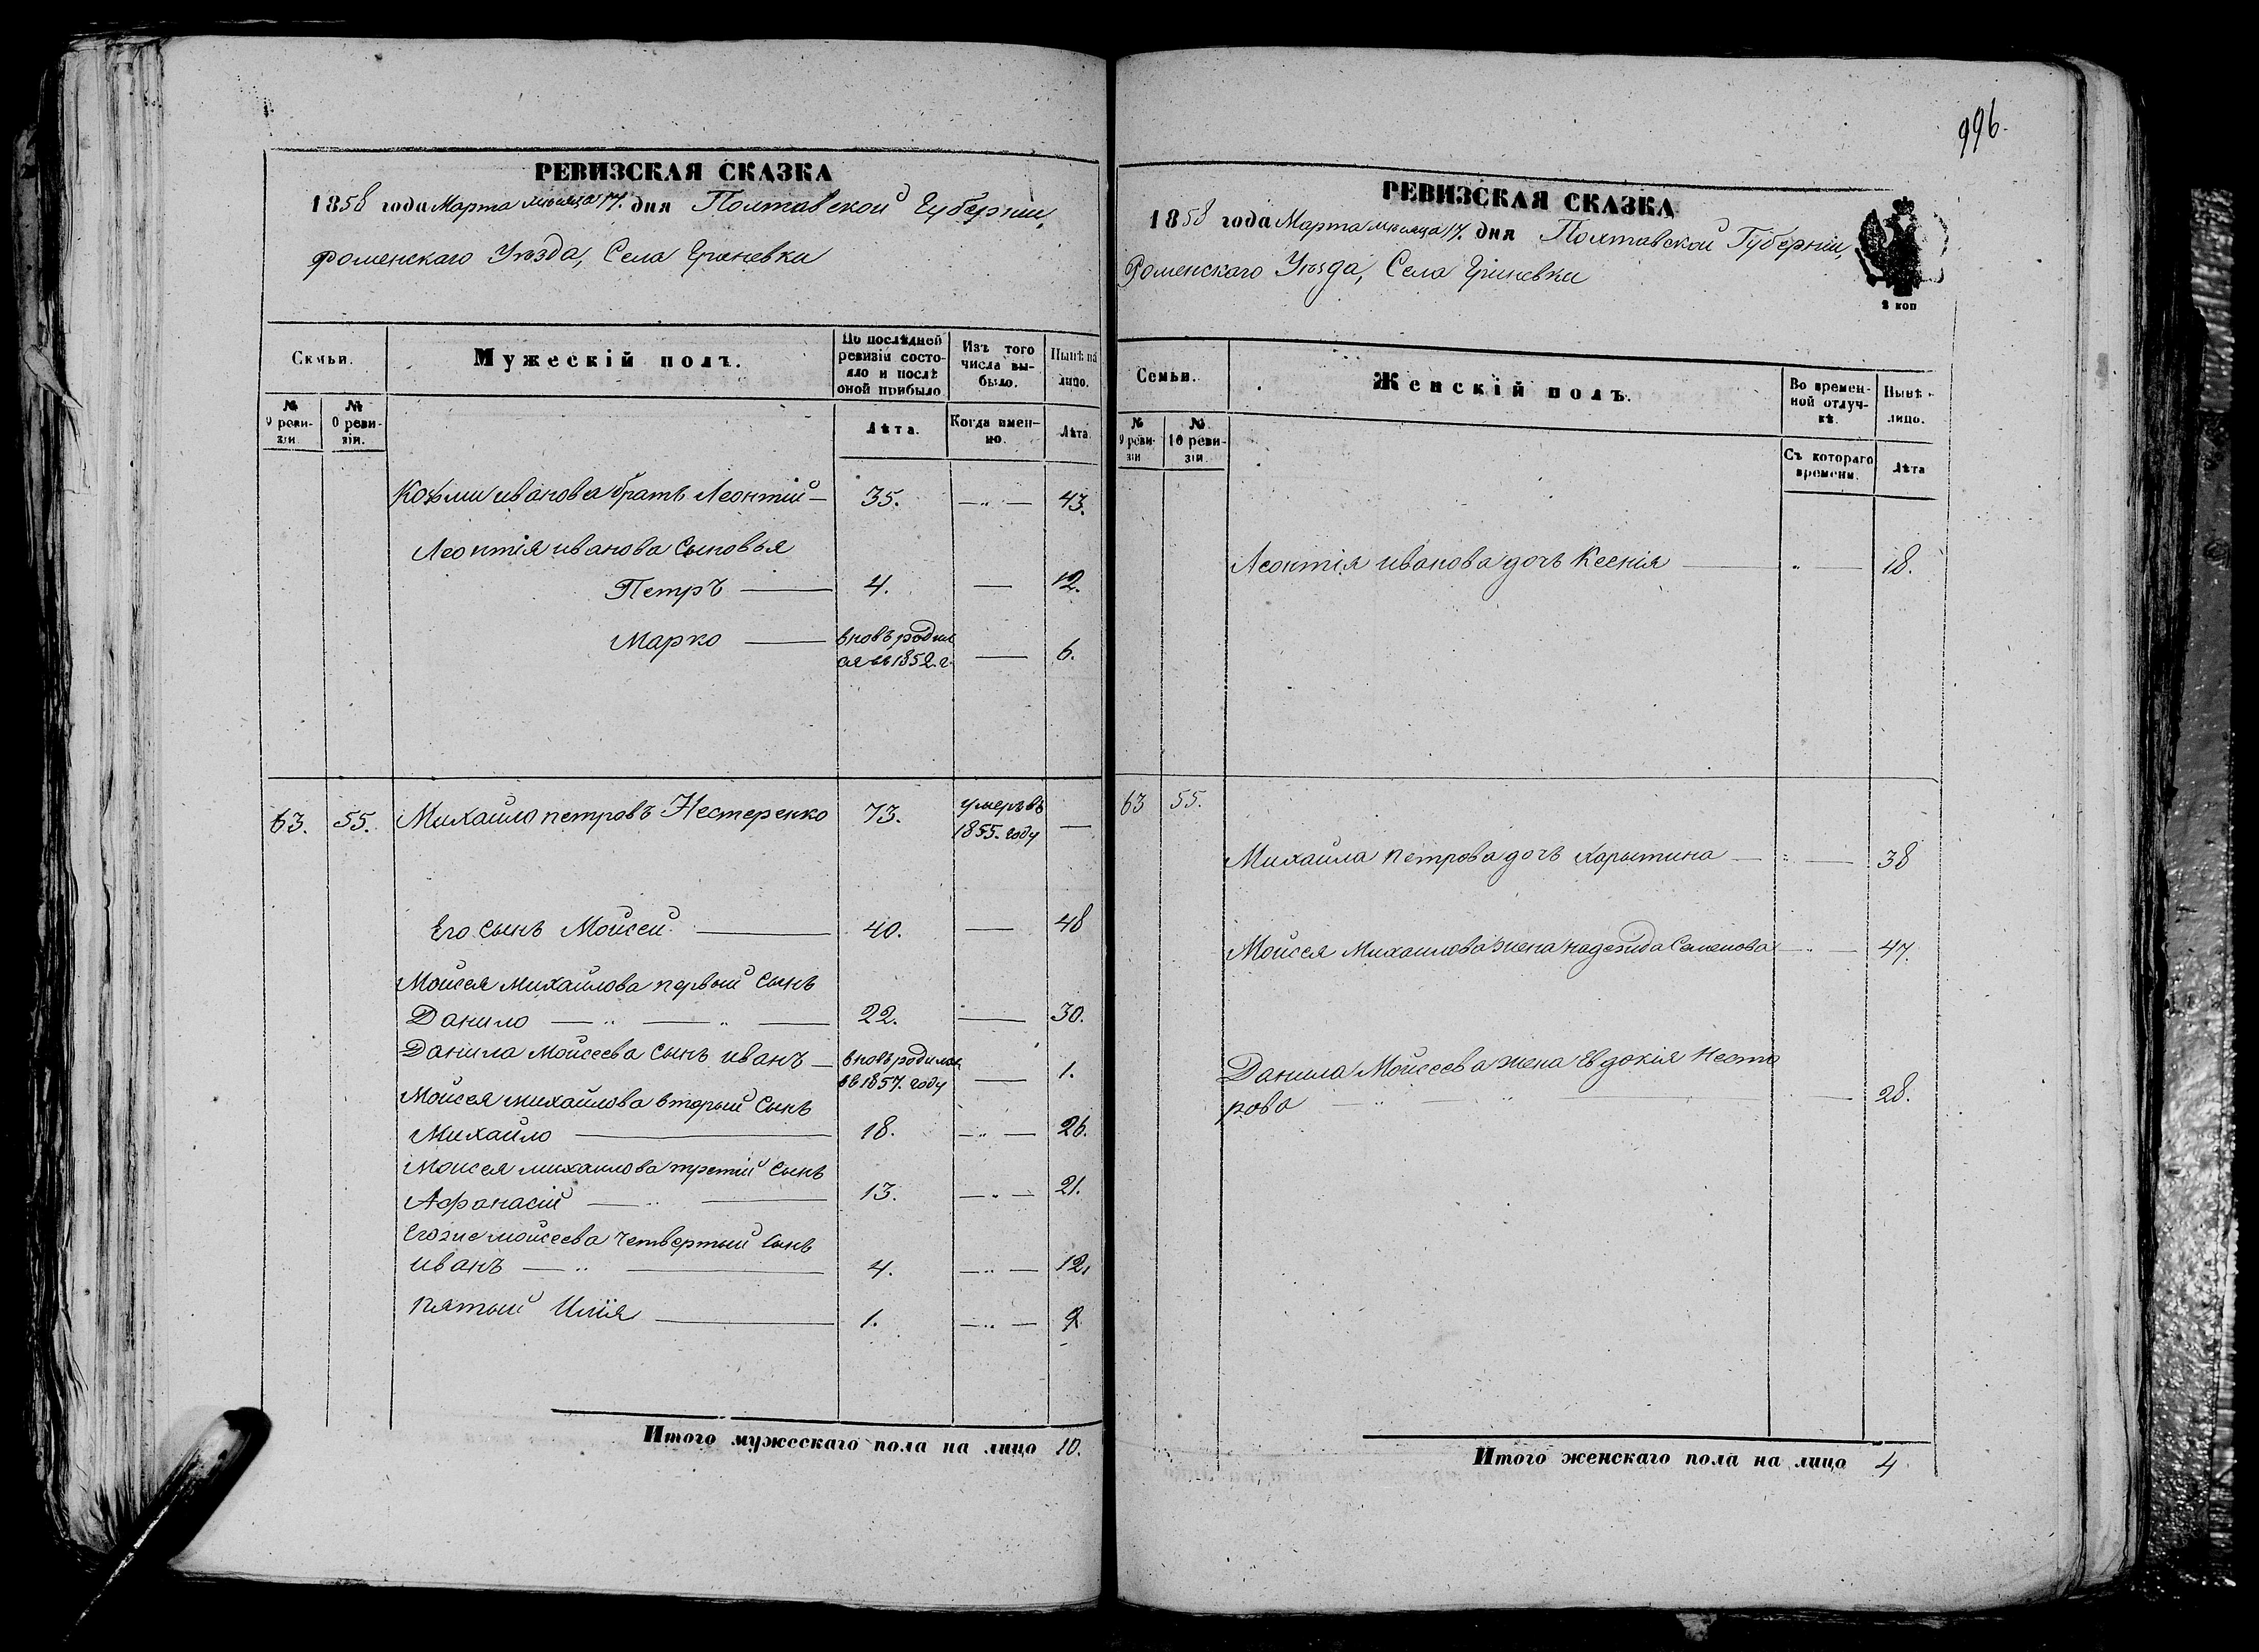 996.
РЕВИЗСКАЯ СКАЗКА
1858 года Марта мѣсяца 17. дня Полтавской Губерніи,
Роменскаго Уѣзда, Села Гриневки
Семьи.
Мужескій полъ.
По послѣдней ревизіи состояло и послѣ оной прибыло
Изъ того числа выбыло.
Нынѣ на лицо.
№ 9 реви-зіи.
№ 10 реви-зіи.
Лѣта.
Когда имен-но.
Лѣта.
Козьми иванова братъ Леонтій — 35. —„— 43.
Леонтія иванова сыновья
Петръ — 4. — 12.
Марко — вновь родил
ся въ 1852. г. — 6.
63. 55. Михайло петровъ Нестеренко 73. умеръ въ
1855. году —
Его сынъ Мойсей — 40. — 48
Мойсея михайлова первый сынъ
Данило —„—„— 22. — 30.
Данила Мойсеева сынъ иванъ — вновь родился
въ 1857. году — 1.
Мойсея михайлова вторый сынъ
Михайло — 18. —„— 26.
Мойсея михайлова третій сынъ
Афанасій —„— 13. —„— 21.
Егоже мойсеева четвертый сынъ
иванъ —„— 4. —„— 12.
пятый Илія — 1. —„— 9
Итого мужескаго пола на лицо 10.
РЕВИЗСКАЯ СКАЗКА
1858 года Марта мѣсяца 17. дня Полтавской Губерніи,
Роменскаго Уѣзда, Села Гриневки
2 коп
Семьи.
Женскій полъ.
Во времен-ной отлуч-кѣ.
Нынѣ
лицо.
№ 9 реви-зіи
№ 10 реви-зіи.
Съ котораго времени.
Лѣта
Леонтія иванова дочь Ксенія — „ — 18.
63 55.
Михайла петрова дочь Харытина — „ — 38
Мойсея Михаилова жена надежда Семенова —„— 47.
Данила Мойсеева жена Евдокія Несто
рова —„—„— 28.
Итого женскаго пола на лицо 4